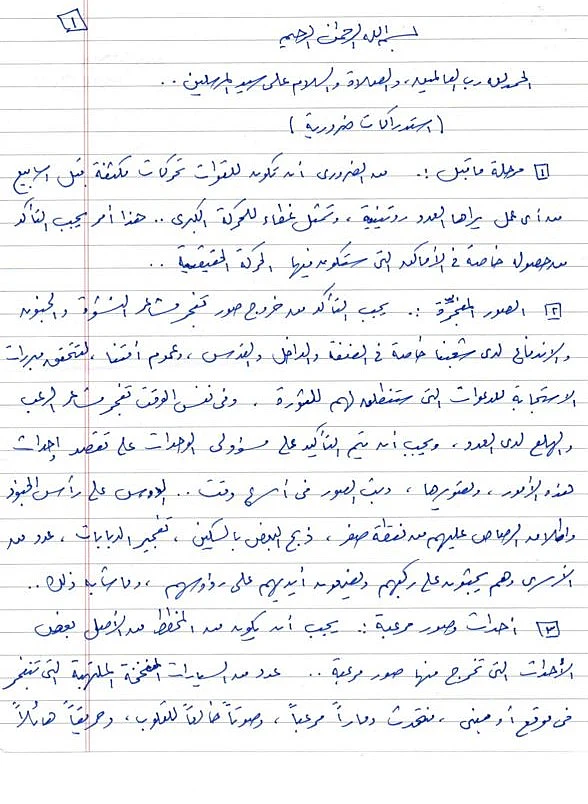 ١
بسم الله الرحمن الرحيم
الحمد لله رب العالمين، والصلاة والسلام على سيد المرسلين ..
(استدراكات ضرورية)
١ مرحلة ما قبل :. من الضروري أن تكون للقوات تحركات مكثفة قبل أسابيع
من أي عمل يراها العدو روتينية، وتمثل غطاء للحركة الكبرى .. هذا أمر يجب التأكد
من حصوله خاصة في الأماكن التي ستكون فيها الحركة الحقيقية ..
٢ الصور المفجرة :. يجب التأكد من خروج صور تفجر مشاعر النشوة والجنون
والاندفاع لدى شعبنا خاصة في الضفة والداخل والقدس، وعموم أمتنا، لتتحقق مبررات
الاستجابة للدعوات التي ستنطلق لهم للثورة. وفي نفس الوقت تفجر مشاعر الرعب
والهلع لدى العدو، ويجب أن يتم التأكيد على مسؤولي الوحدات على تقصد إحداث
هذه الأمور، وتصويرها، وبث الصور في أسرع وقت .. الدوس على رأس الجنود
وإطلاق الرصاص عليهم من نقطة صفر، ذبح البعض بالسكين، تفجير الدبابات، عدد من
الأسرى وهم يجثون على ركبهم ويضعون أيديهم على رؤوسهم، وما شابه ذلك ..
٣ أحداث وصور مرعبة :. يجب أن يكون من المخطط من الأصل بعض
الأحداث التي تخرج منها صور مرعبة .. عدد من السيارات المفخخة الملتهبة التي تنفجر
في موقع أو مبنى، فتحدث دماراً مرعباً، وصوتاً خالعاً للقلوب، وحريقاً هائلاً